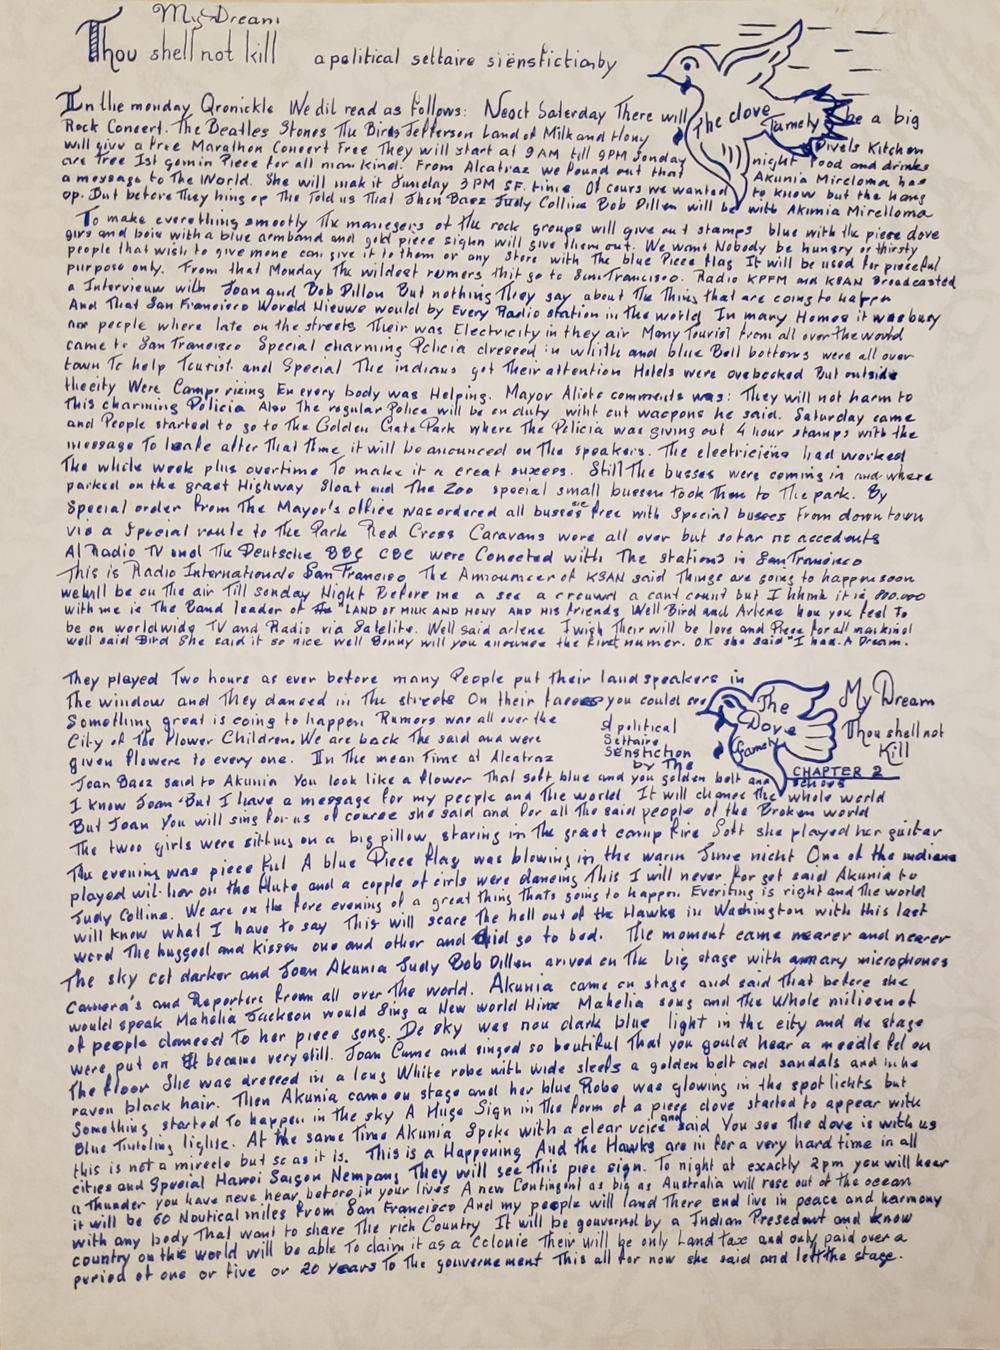 My Dream
Thou shell not kill a political settaire siënsfiction by
The dove Famely
In the monday Qronickle We dil read as follows: Neoct Saterday There will be a big
Rock Concert. The Beatles Stones The Birds Jefferson Land of Milk and Hony Divels Kitchen
will give a free Marathon Concert Free They will start at 9 AM till 9PM Sonday night Food and drinks
are free Ist gemin Piece for all man kind. From Alcatraz we found out that Akunia Mireloma has
a message to The World. She will make it Sunday 9 PM S.F. time Of cours we wanted to know but the hang
op. But before They hing op The Told us That Jhon Baez Judy Collins Bob Dillen will be with Akimia Mirelloma
To make everething smoothly The manegers of the rock groups will give out stamps blue with the piece dove
girs and bois with a blue armband and gold piece sighn will give them out. We want Nobody be hungry or thirsty
people that wish to give mone can give it to them or any store with The blue Piece flag It will be used for pieceful
purpose only. From that Monday The wildest rumers thit go to San Francisco. Radio KPFM and KSAN Broadcasted
a Interviewn with Joan and Bob Dillon But nothing They say about The Thins that are coing to happen
And That San Francisco Woreld Nieuws would by Every Radio station in the world In many Homes it was busy
people where late on the streets Their was Electricity in they air Many Tourist from all over the world
came to San Francisco Special charming Policia dressed in whith and blue Bell bottoms were all over
town To help Tourist. and Special The indians got Their attention Hotels were ovebocked But outside
thecity Were Campe rizing En every body was Helping. Mayor Alioto comments was: They will not harm to
This charming Policia Also The regular Police will be on duty wiht out wacpons he said. Saturday came
and People started to go to the Golden Gate Park where The Policia was giving out 4 hour stamps with the
message To leafe after That Time it will be anounced on The speakers. The electriciens had worked
The whole week plus overtime To make it a creat suxces. Still The busses were coming in and where
parked on the graet Highway Sloat and The Zoo special small bussen took Them to The park. By
Special order from The Mayor's office was ordered all busses free with Special busses From down town
via a Special route to the Park Red Cross Caravans were all over but so far no accedents
Al Radio TV and The Deutsche BBC CBC were Conected with The stations in San Francisco
This is Radio Internationale San Francisco The Announcer of KSAN said Things are going to happen soon
wehill be on The air Till sonday Night Before me a see a creuwd a cant count but I think it is 800.000
with me is The Band leader of the "LAND OF MILK AND HONY AND HIS friends Well Bird and Arlene how you feel To
be on worldwide TV and Radio via Satelite. Well said arlene I wish Their will be love and Piece for all mankind
well said Bird She said it so nice well Bonny will you anounce the first numer. OK she said "I had. A Dream.
They played Two hours as ever before many People put their land speakers in
The window and They danced in The streets On their faces you could see
Something great is coing to happen Rumors was all over the
City of The Flower Children. We are back The said and were
given flowers to every one. In the mean Time at Alcatraz
A political
Settaire
Sënsfichtion
by The
The Dove Famely
My Dream
Thou shell not
Kill
CHAPTER 2
Joan Baez said to Akunia You look like a flower That soft blue and you golden belt and
I know Joan But I have a message for my people and The world It will change The whole world
But Joan You will sing for us of course she said and for all The said people of the Broken world
The two girls were sitting on a big pillow, staring in The great camp fire Soft she played her guitar
The evening was piece ful A blue Piece flag was blowing in the warm June nicht One of the indians
played on the flute and a copple of girls were dancing This I will never for get said Akunia to
Judy Collins. We are on the fore evening of a great thing thats going to happen. Evering is right and The world
will know what I have to say This will scare The hell out of the Hawks in Washington with this last
word The hugged and kissen one and other and did go to bed. The moment came nearer and nearer
The sky cet darker and Joan Akunia Judy Bob Dillen arived on The big stage with many microphones
Camera's and Reporters from all over The world. Akunia came on stage and said That before she
would speak Mahelia Jackson would Sing a New world Hinx Mahelia song and The Whole milioen of
of people clameed To her piece song. De sky was nou dark blue light in the city and de stage
were put on It became very still. Joan Came and singed so boutiful That you gould hear a needle fel on
The floor She was dressed in a long White robe with wide sleefs a golden belt and sandals and in he
raven black hair. Then Akunia came on stage and her blue Robe was glowing in the spot lichts but
Something started To happen in the sky A Huge Sign in The form of a piece dove started to appear with
Blue Twinling lighse. At the same Time Akunia Speke with a clear voice and said You see The dove is with us
this is not a miracle but so as it is. This is a Happening And the Hawks are in for a very hard time in all
cities and Special Hanoi Saigon Nempang They will see This piec sign. To night at exactly 2pm you will hear
a Thunder you have neve hear before in your lives A new Contingent as big as Australia will rose out of the ocean
it will be 60 Noutical miles from San Francisco And my people will land There end live in peace and harmony
with any body That want to share The rich Country It will be gouverned by a Indian Presedent and know
country on this world will be able To claim it as a Colonie Their will be only Land tax and only paid over a
period of one or five or 20 years To the gouvernement This all for now she said and left the stage.